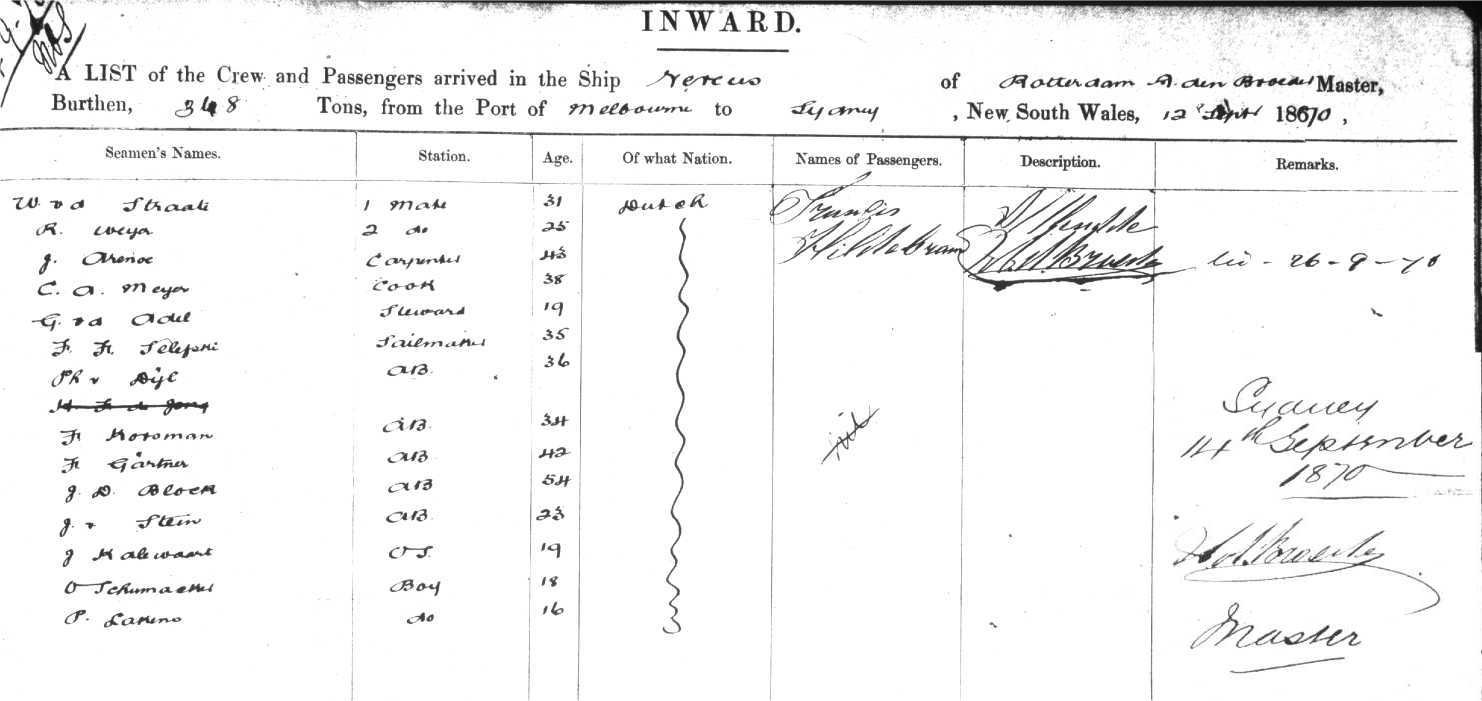 INWARD.
A LIST of the Crew and Passengers arrived in the Ship Nereus of Rotterdam A. den Broeder Master,
Burthen, 348 Tons, from the Port of Melbourne to Sydney, New South Wales, 12 Sept 1870,
Seamen's Names. Station. Age. Of what Nation. Names of Passengers. Description. Remarks.
W. v d Straate 1 Mate 31 Dutch Francis
R. Weyer 2 do 25 Hildebrand
J. Carpenter 43 26-9-70
C. A. Meyer Cook 38
G. v d Adel Steward 19
F. Fr. Sailmaker 35
Ph v Dijl AB. 36
H. F. de Jong
Fr Horsman AB. 34 nil
Fr Gärtner AB 42
J. D. Block AB 54
J. v Stein AB. 23
J Kalewaart OS. 19
O Schumacher Boy 18
P. do 16
Sydney
14th September
1870
Master